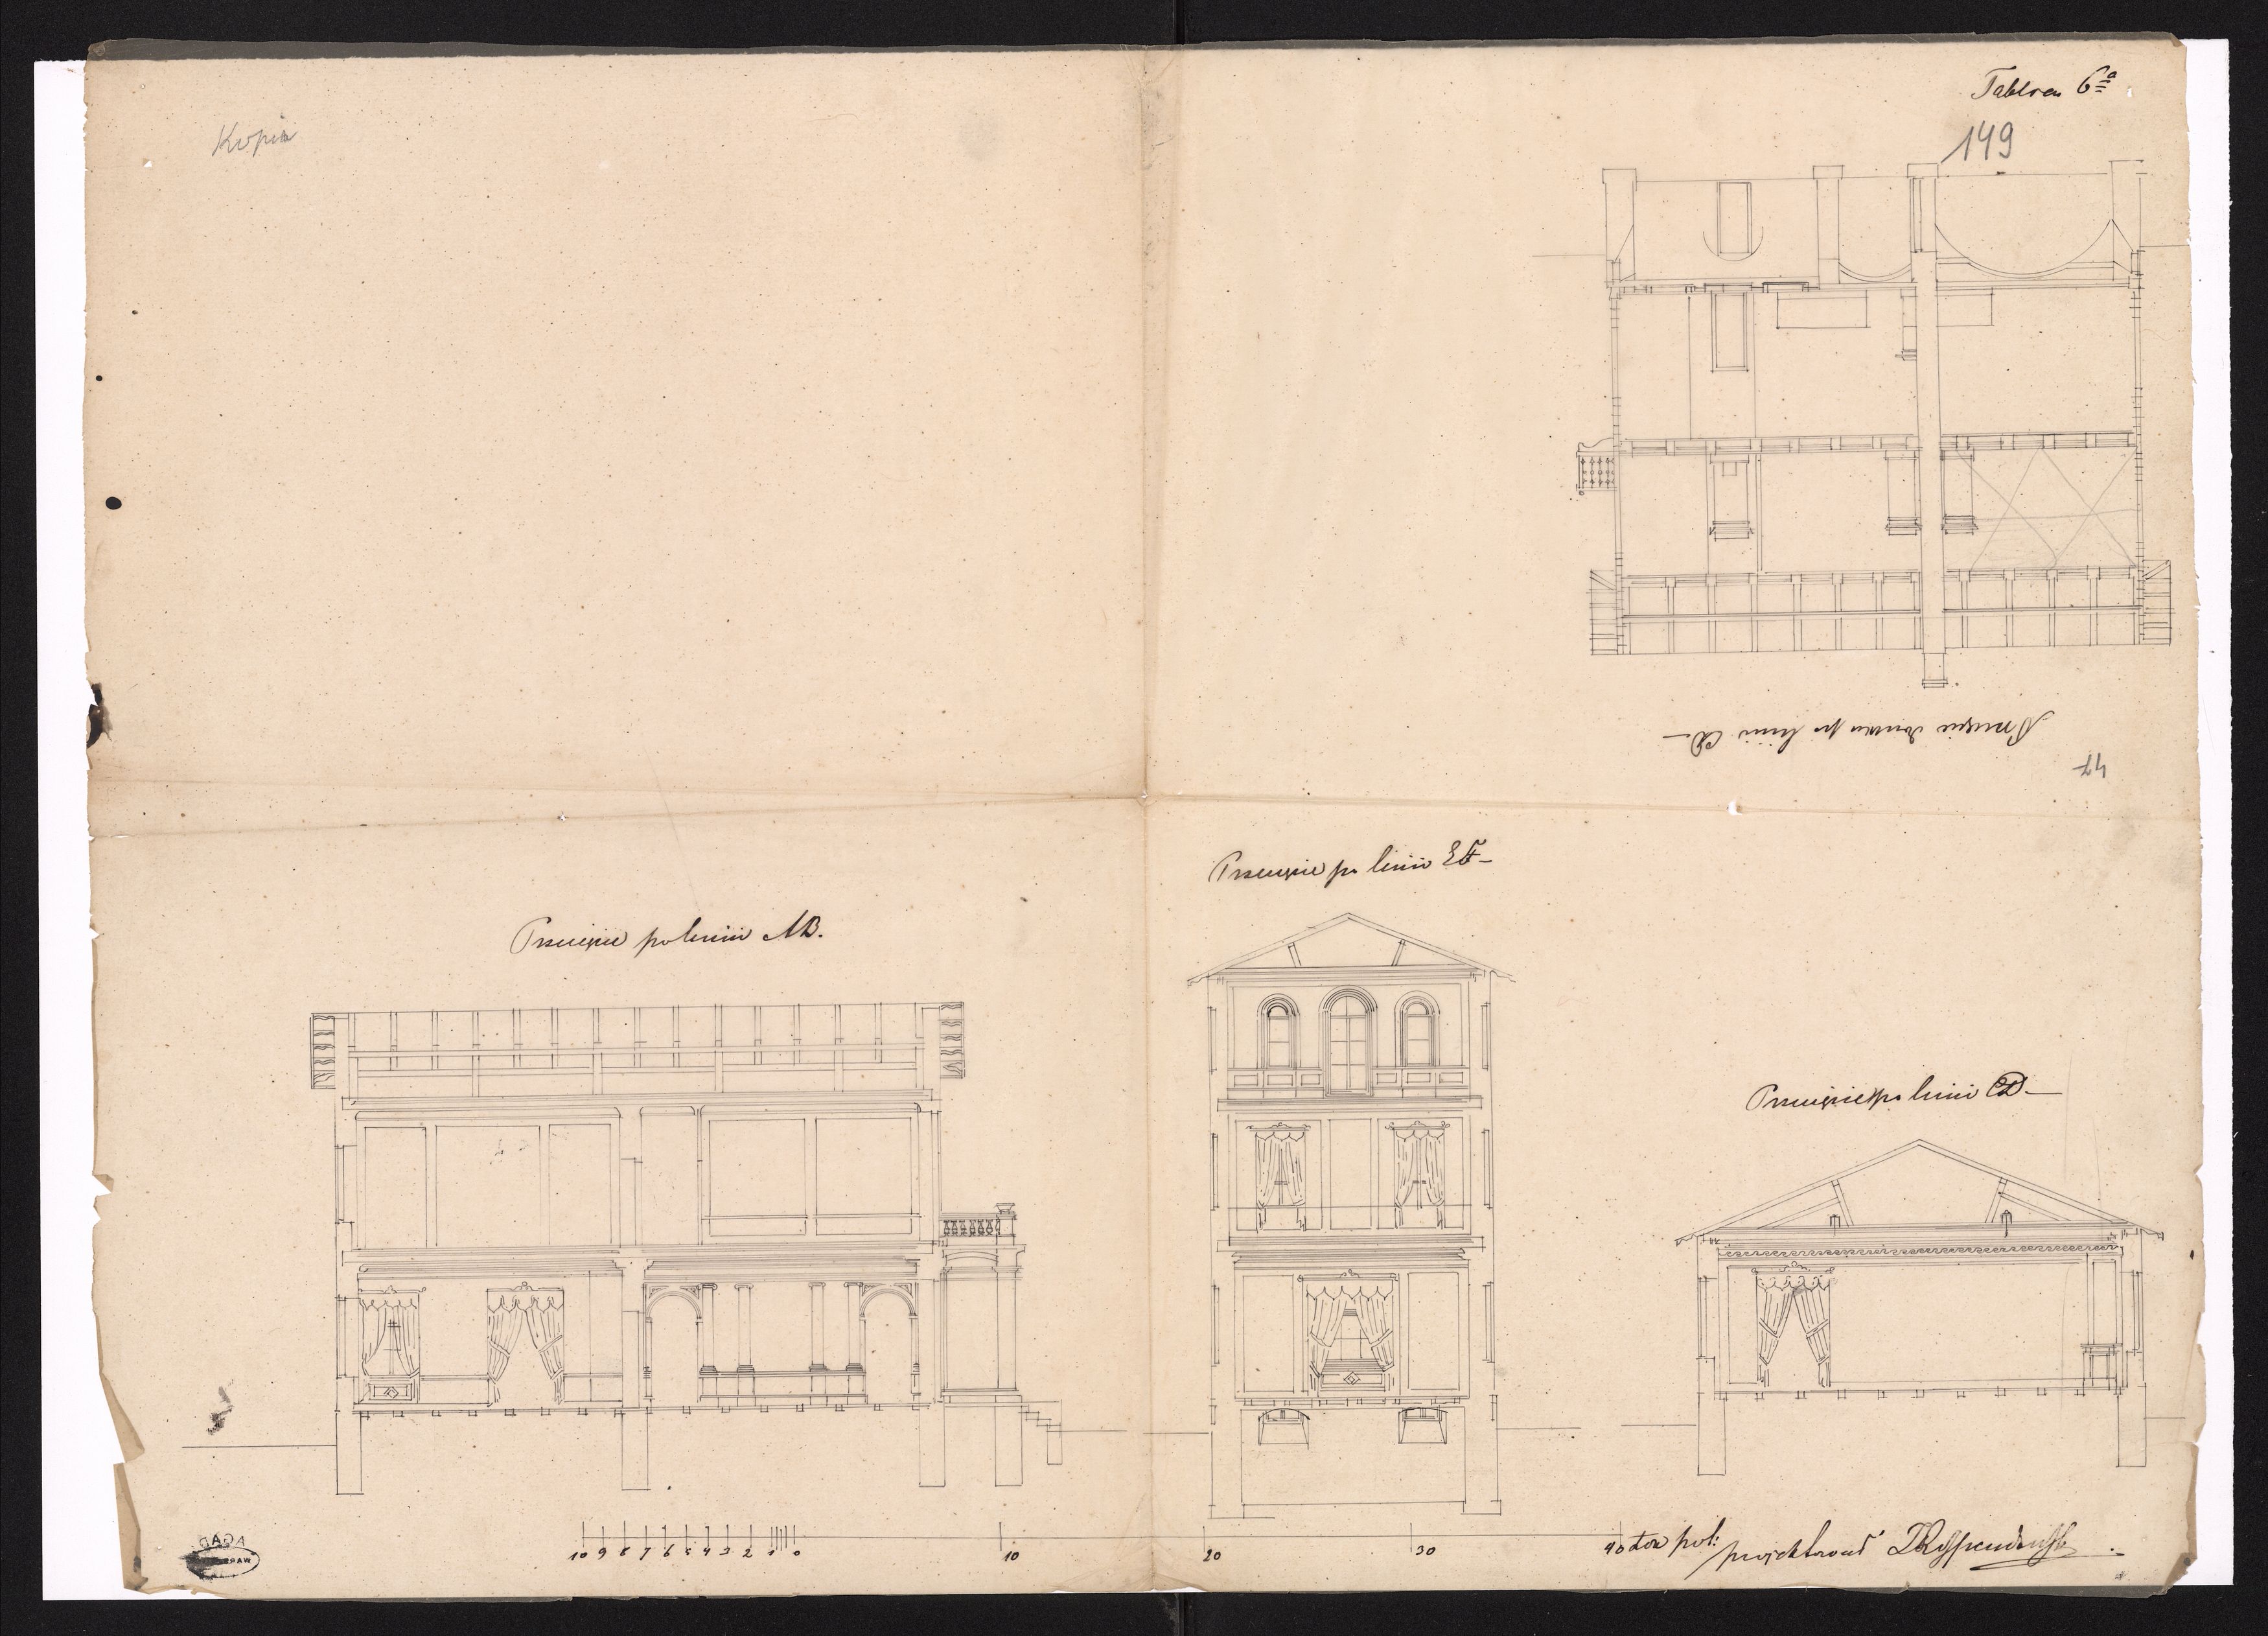 Tableau 6a
Kopia
149
Przecięcie domu po linii CD—
47
Przecięcie po linii EF—
Przecięcie po linii AB.
Przecięcie po linii CD—
10 9 8 7 6 5 4 3 2 1 0 10 20 30 40 łok pol:
projektował
AGAD